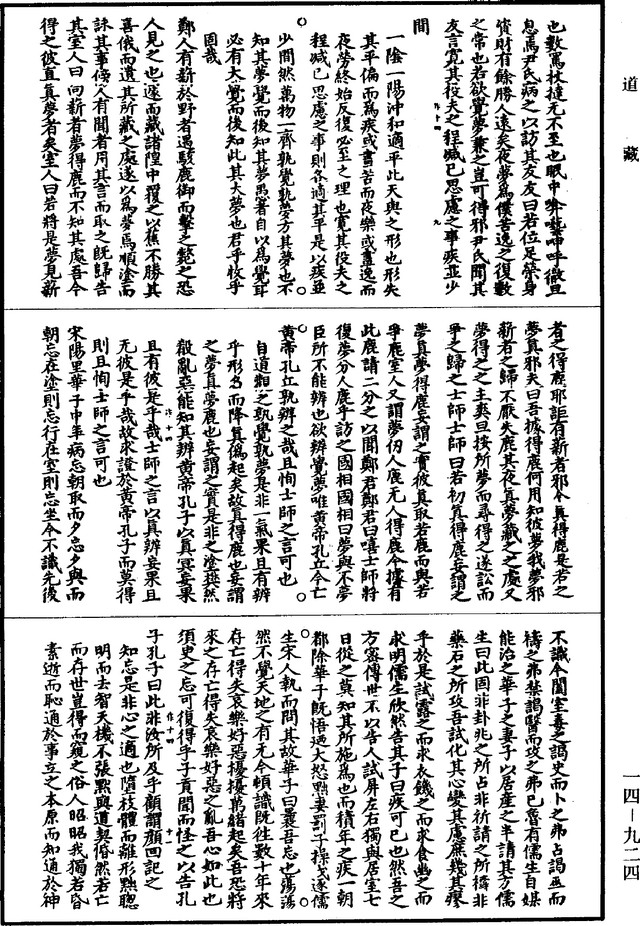 道藏
也數罵杖撻无不至也眠中啽囈呻呼徹旦
息焉尹氏病之以訪其友友曰若位足榮身
資財有餘勝人遠矣夜夢為僕苦逸之復數
之常也若欲覺夢兼之豈可得邪尹氏聞其
友言寬其役夫之程減已思慮之事疾並少
間
一陰一陽沖和適平此天與之形也形失
其平偏而為疾或晝苦而夜樂或晝逸而
夜勞終始反復必至之理也寬其役夫之
程減已思慮之事則各適其平是以疾並
少間然萬物一齊孰覺孰夢方其夢也不
知其夢覺而後知其夢愚者自以為覺耳
必有大覺而後知此其大夢也君乎牧乎
固哉
鄭人有薪於野者遇駭鹿御而擊之斃之恐
人見之也遽而藏諸隍中覆之以蕉不勝其
喜俄而遺其所藏之處遂以為夢焉順塗而
詠其事傍人有聞者用其言而取之既歸告
其室人曰向薪者夢得鹿而不知其處吾今
得之彼直真夢者矣室人曰若將是夢見薪
者之得鹿邪詎有薪者邪今真得鹿是若之
夢真邪夫曰吾據得鹿何用知彼夢我夢邪
薪者之歸不厭失鹿其夜真夢藏之之處又
夢得之之主爽旦按所夢而尋得之遂訟而
爭之歸之士師士師曰若初真得鹿妄謂之
夢真夢得鹿妄謂之實彼真取若鹿而與若
爭鹿室人又謂夢仞人鹿无人得鹿今據有
此鹿請二分之以聞鄭君鄭君曰嘻士師將
復夢分人鹿乎訪之國相國相曰夢與不夢
臣所不能辨也欲辨覺夢唯黃帝孔丘今亡
黃帝孔丘孰辨之哉且恂士師之言可也
自道觀之孰覺孰夢是非一氣果且有辨
乎形名而降真偽起矣故真得鹿也妄謂
之夢真夢鹿也妄謂之實是非之塗樊然
殽亂惡能知其辨黃帝孔子以真冥妄果
且有彼是乎哉士師之言以真辨妄果且
无彼是乎哉故求證於黃帝孔子而莫得
則且恂士師之言可也
宋陽里華子中年病忘朝取而夕忘夕與而
朝忘在塗則忘行在室則忘坐今不識先後
不識今闔室毒之謁史而卜之弗占謁巫而
禱之弗禁謁醫而攻之弗已魯有儒生自媒
能治之華子之妻子以居產之半請其方儒
生曰此固非卦兆之所占非祈請之所禱非
藥石之所攻吾試化其心變其慮庶幾其瘳
乎於是試露之而求衣饑之而求食幽之而
求明儒生欣然告其子曰疾可已也然吾之
方密傳世不以告人試屏左右獨與居室七
日從之莫知其所施為也而積年之疾一朝
都除華子既悟迺大怒黜妻罰子操戈逐儒
生宋人執而問其故華子曰曩吾忘也蕩蕩
然不覺天地之有无今頓識既往數十年來
存亡得失哀樂好惡擾擾萬緒起矣吾恐將
來之存亡得失哀樂好惡之亂吾心如此也
須臾之忘可復得乎子貢聞而怪之以告孔
子孔子曰此非汝所及乎顧謂顏回記之
知忘是非心之適也墮枝體而離形黜聰
明而去智天機不張默與道契侗然若亡
而存世豈得而窺之俗人昭昭我獨若昏
素逝而恥通於事立之本原而知通於神
一四—九二四